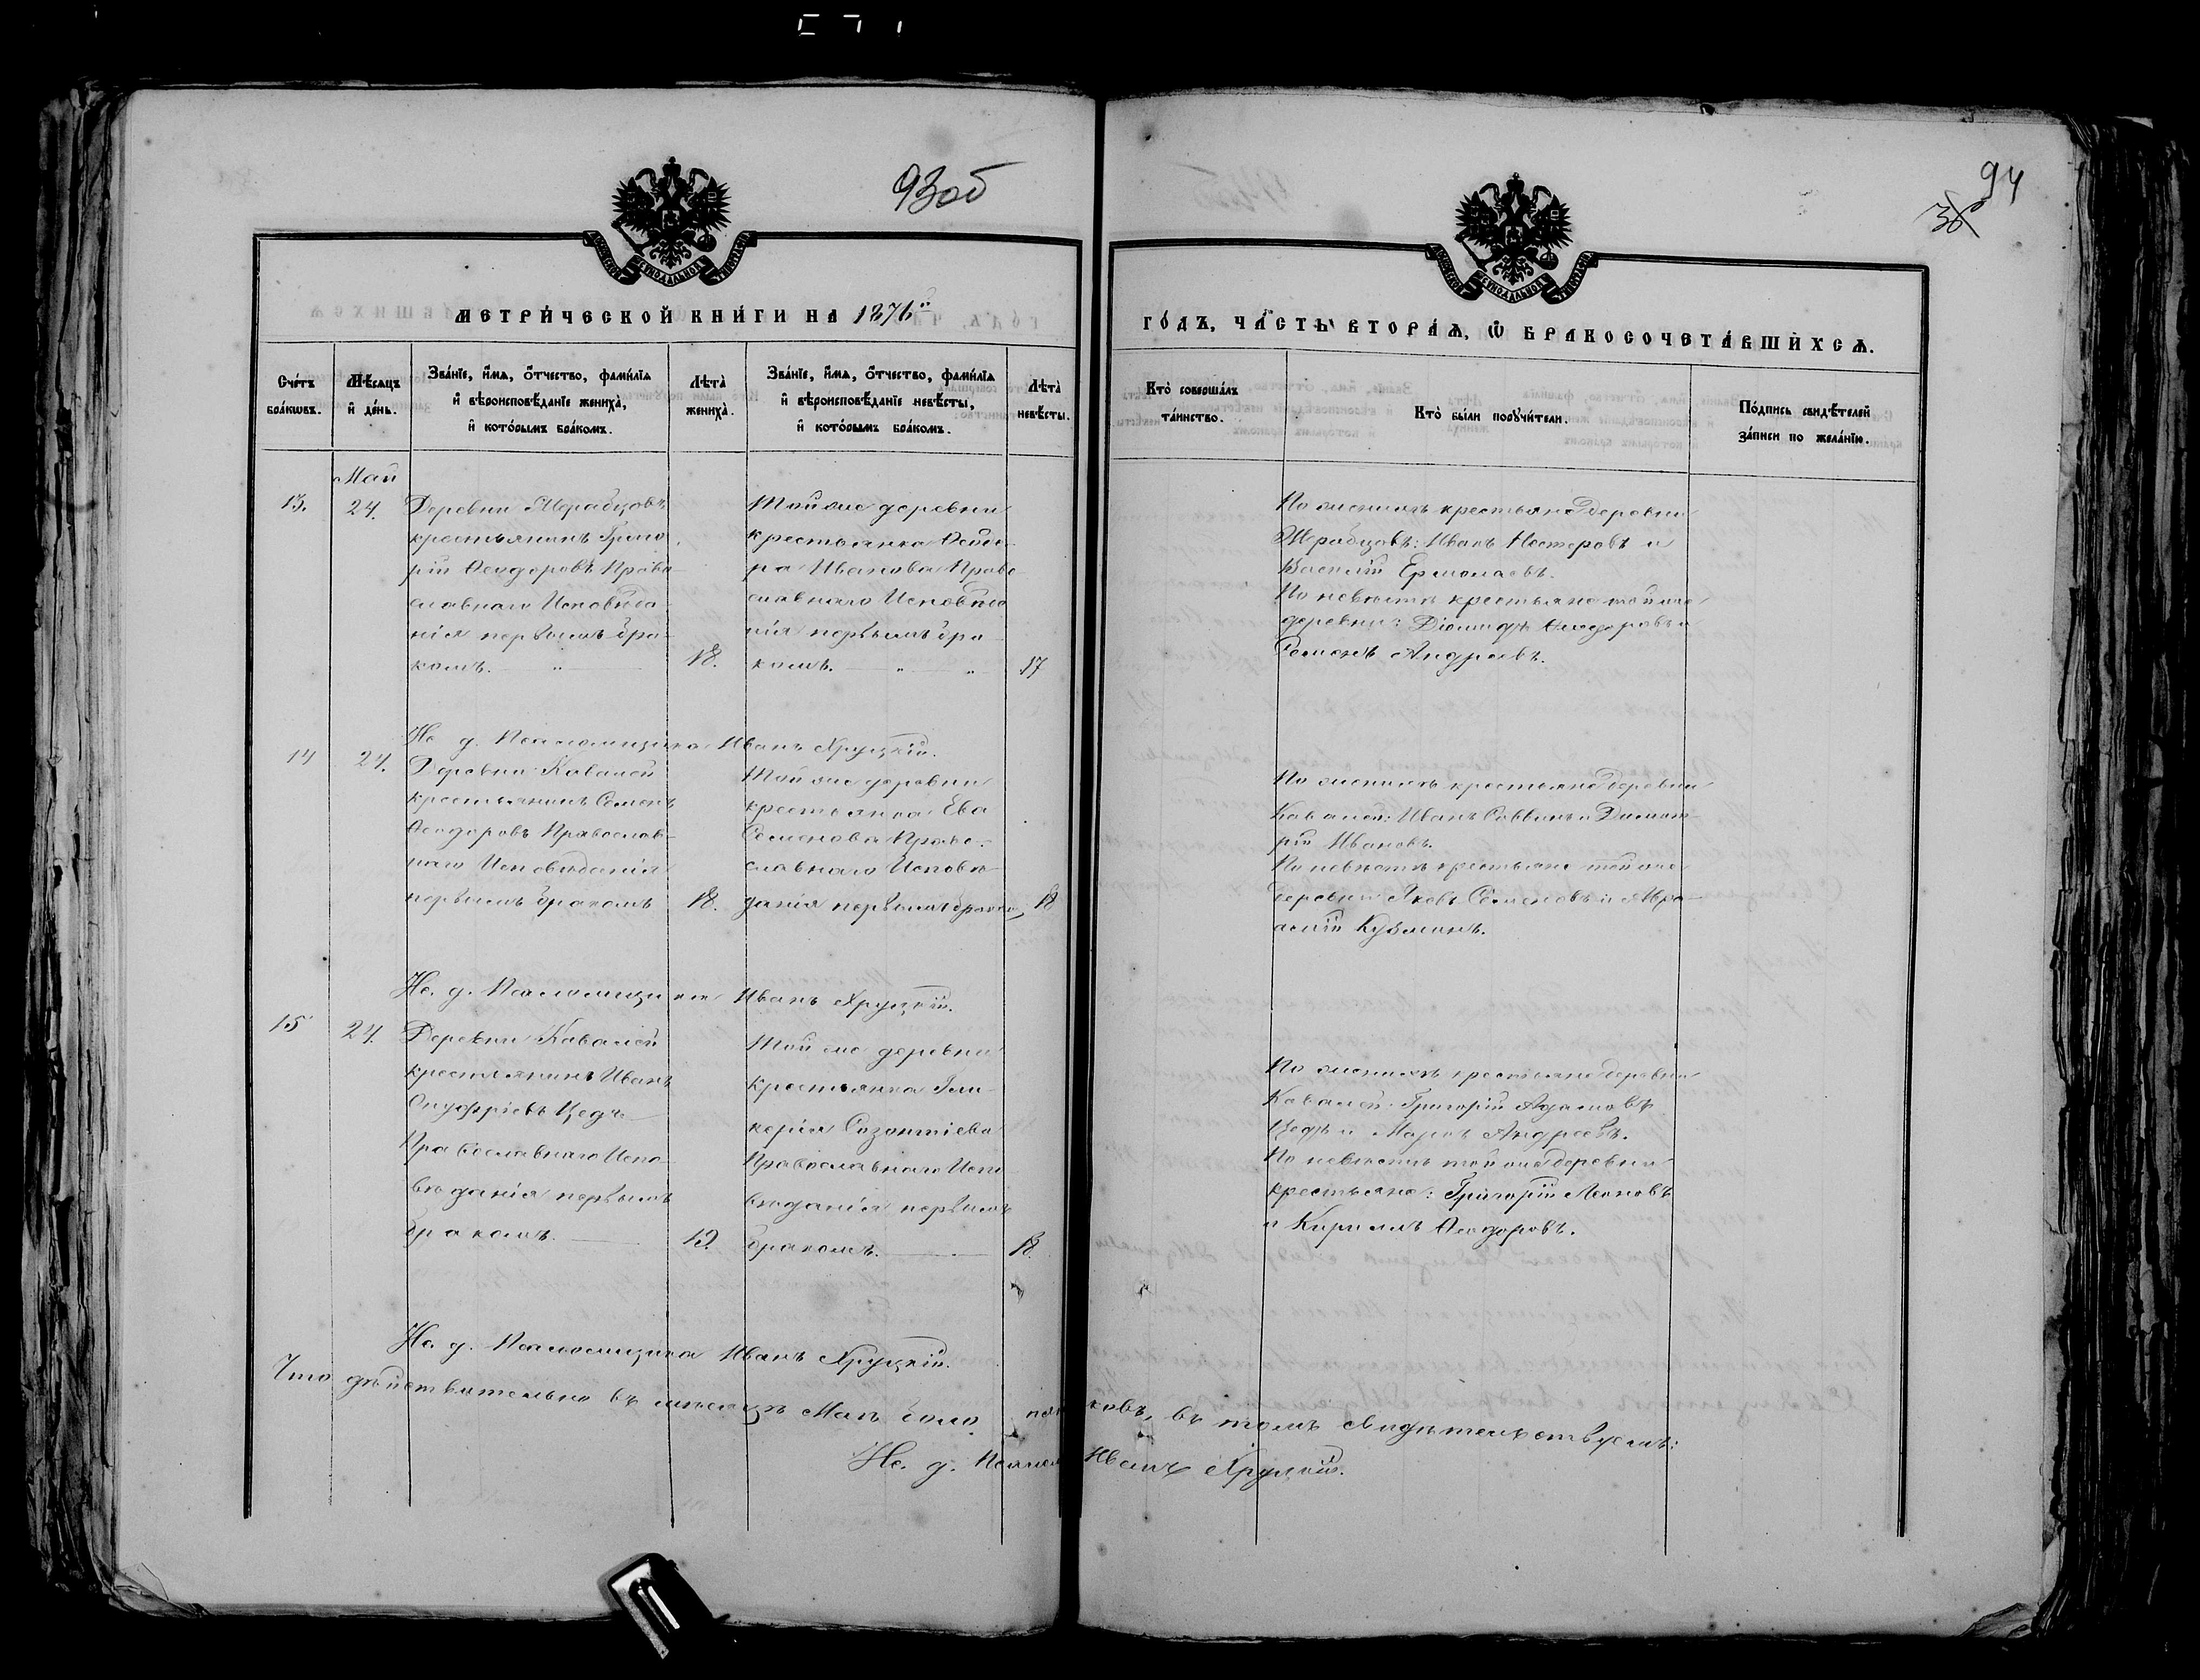 93об
94
36
МЕТРИ́ЧЕСКОЙ КНИ́ГИ НА 1876й
ГО́ДЪ, ЧА́СТЬ ВТОРА́Ѧ, Ѡ БРАКОСОЧЕТА́ВШИХСѦ.
Сче́тъ бра́кѡвъ.
Мѣ́сѧцъ и҆ де́нь.
Зва́нїе, и҆́мѧ, ѻ҆́тчество, фами́лїѧ
и҆ вѣроисповѣ́данїе жениха̀,
и҆ кото́рымъ бра́комъ.
Лѣ́та жениха̀.
Зва́нїе, и҆́мѧ, ѻ҆́тчество, фами́лїѧ
и҆ вѣроисповѣ́данїе невѣ́сты,
и҆ кото́рымъ бра́комъ.
Лѣ́та невѣ́сты.
Кто̀ соверша́лъ та́инство.
Кто̀ бы́ли порꙋчи́тели.
По́дпись свидѣ́телей за́писи по жела́нїю.
Май
13.
24.
Деревни Жерабцовъ
крестьянинъ Григо
рій Ѳеодоровъ Право-
славнаго Исповѣда
нія первымъ бра-
комъ.
18.
Той же деревни
крестьянка
Иванова Право
славнаго Исповѣда
нія первымъ бра
комъ.
17
По женихѣ крестьяне деревни
Жерабцовъ: Иванъ Несторовъ и
Василій Ермолаевъ.
По невѣстѣ крестьяне той же
деревни: Діомидъ Ѳеодоровъ и
Семенъ Андреевъ.
Не. д. Псаломщика Иванъ Хруцкій.
14
24.
Деревни Кавалей
крестьянинъ Семенъ
Ѳеодоровъ Православ-
наго Исповѣданія
первымъ бракомъ
18.
Той же деревни
крестьянка Ева
Семенова Право-
славнаго Исповѣ-
данія первымъ бракомъ,
18
По женихѣ крестьяне деревни
Кавалей: Иванъ Саввинъ и Димит-
рій Ивановъ.
По невѣстѣ крестьяне той же
деревни Яковъ Семеновъ и
Кузьминъ.
Не. д. Псаломщика Иванъ Хруцкій.
15
24.
Деревни Кавалей
крестьянинъ Иванъ
Онуфріевъ Цедъ
Православнаго Испо-
вѣданія первымъ
бракомъ.
19.
Той же деревни
крестьянка Гли-
керія Созонтіева
Православнаго Испо
вѣданія первымъ
бракомъ.
18.
По женихѣ крестьяне деревни
Кавалей: Григорій Адамовъ
Цедъ и Марко Андреевъ.
По невѣстѣ той же деревни
крестьяне: Григорій Леоновъ
и Кириллъ Ѳеодоровъ.
Не. д. Псаломщика Иванъ Хруцкій.
Что дѣйствительно въ мѣсяцѣ Маѣ было въ томъ свидѣтельствуемъ:
Не. д. Иванъ Хруцкій.